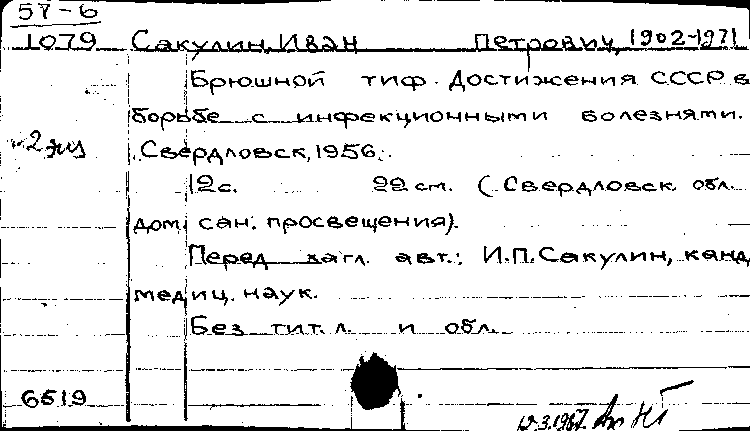 57-6
1079 Сакулин, Иван Петрович, 1902-1971
Брюшной тиф. Достижения СССР в
борьбе с инфекционными болезнями.
2 экз
Свердловск, 1956.
12с. 22 см. (Свердловск обл.
дом сан. просвещения).
Перед загл. авт.: И.П. Сакулин, канд
медиц. наук.
Без тит. л. и обл.
6519
12.3.1967